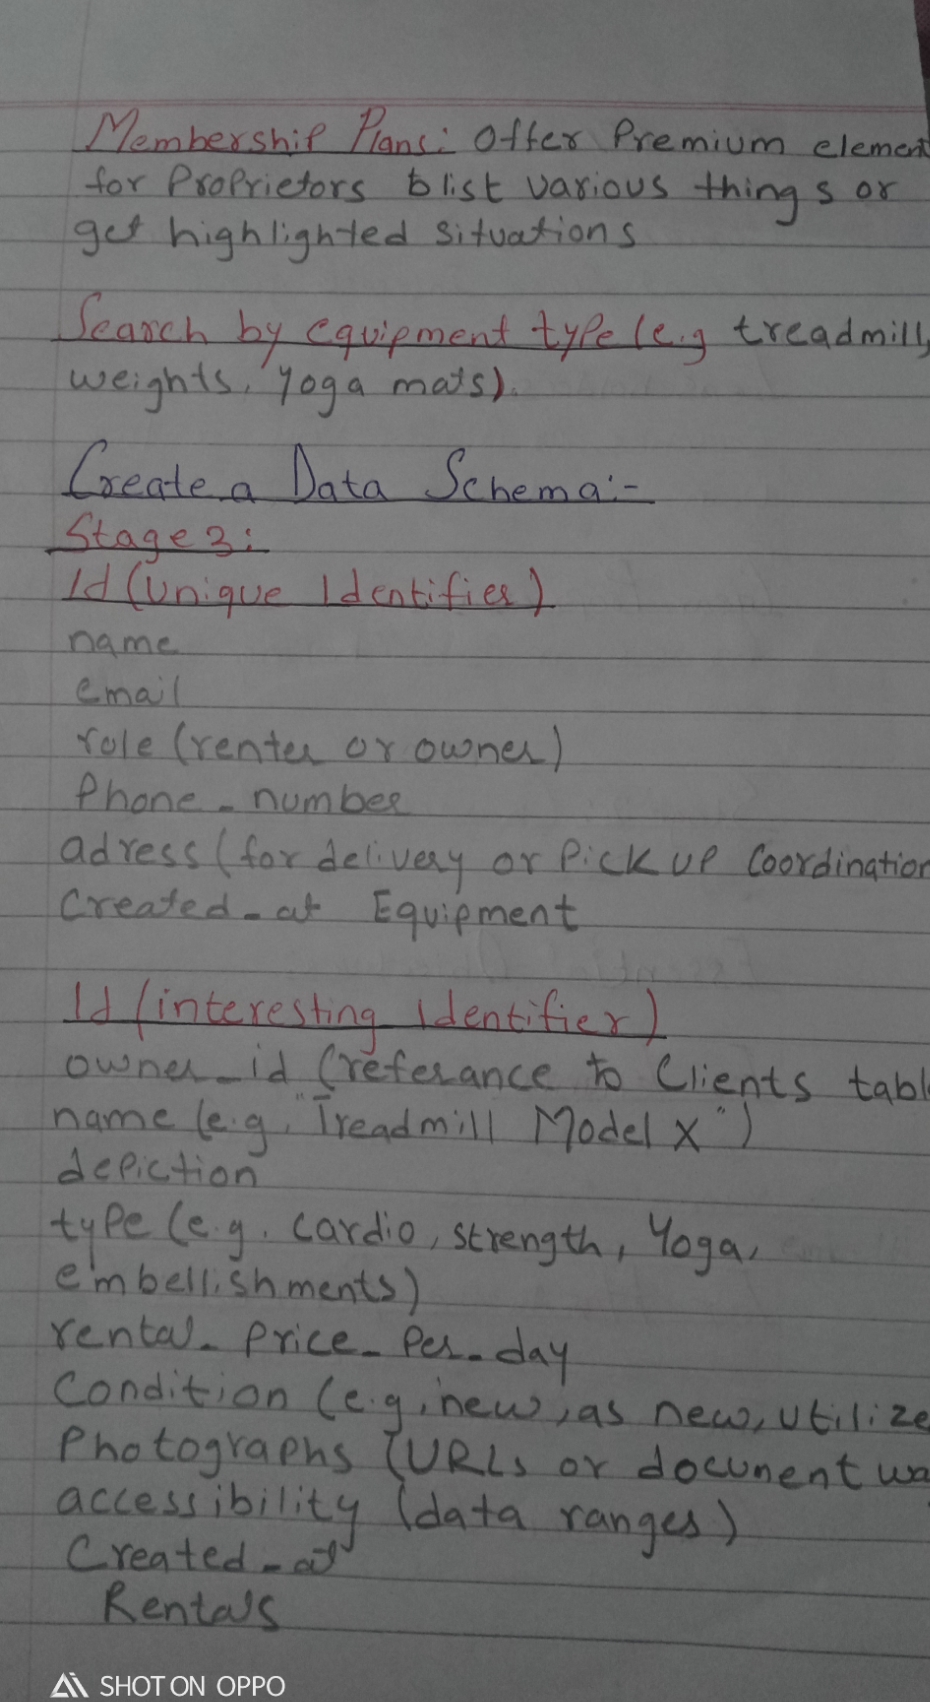 Membership Plans: Offer Premium element
for Proprietors to list various things or
get highlighted situations
Search by equipment type (e.g treadmill,
weights, Yoga mats).
Create a Data Schema:-
Stage 3:
Id (Unique Identifier)
name
email
role (renter or owner)
Phone_number
adress (for delivery or Pick up Coordination
Created_at Equipment
Id (interesting Identifier)
owner_id (referance to Clients tabl
name (e.g. "Treadmill Model X")
depiction
type (e.g. cardio, strength, Yoga,
embellishments)
rental_price_Per_day
Condition (e.g, new, as new, utilize
Photographs (URLs or document wa
accessibility (data ranges)
Created_at
Rentals
SHOT ON OPPO